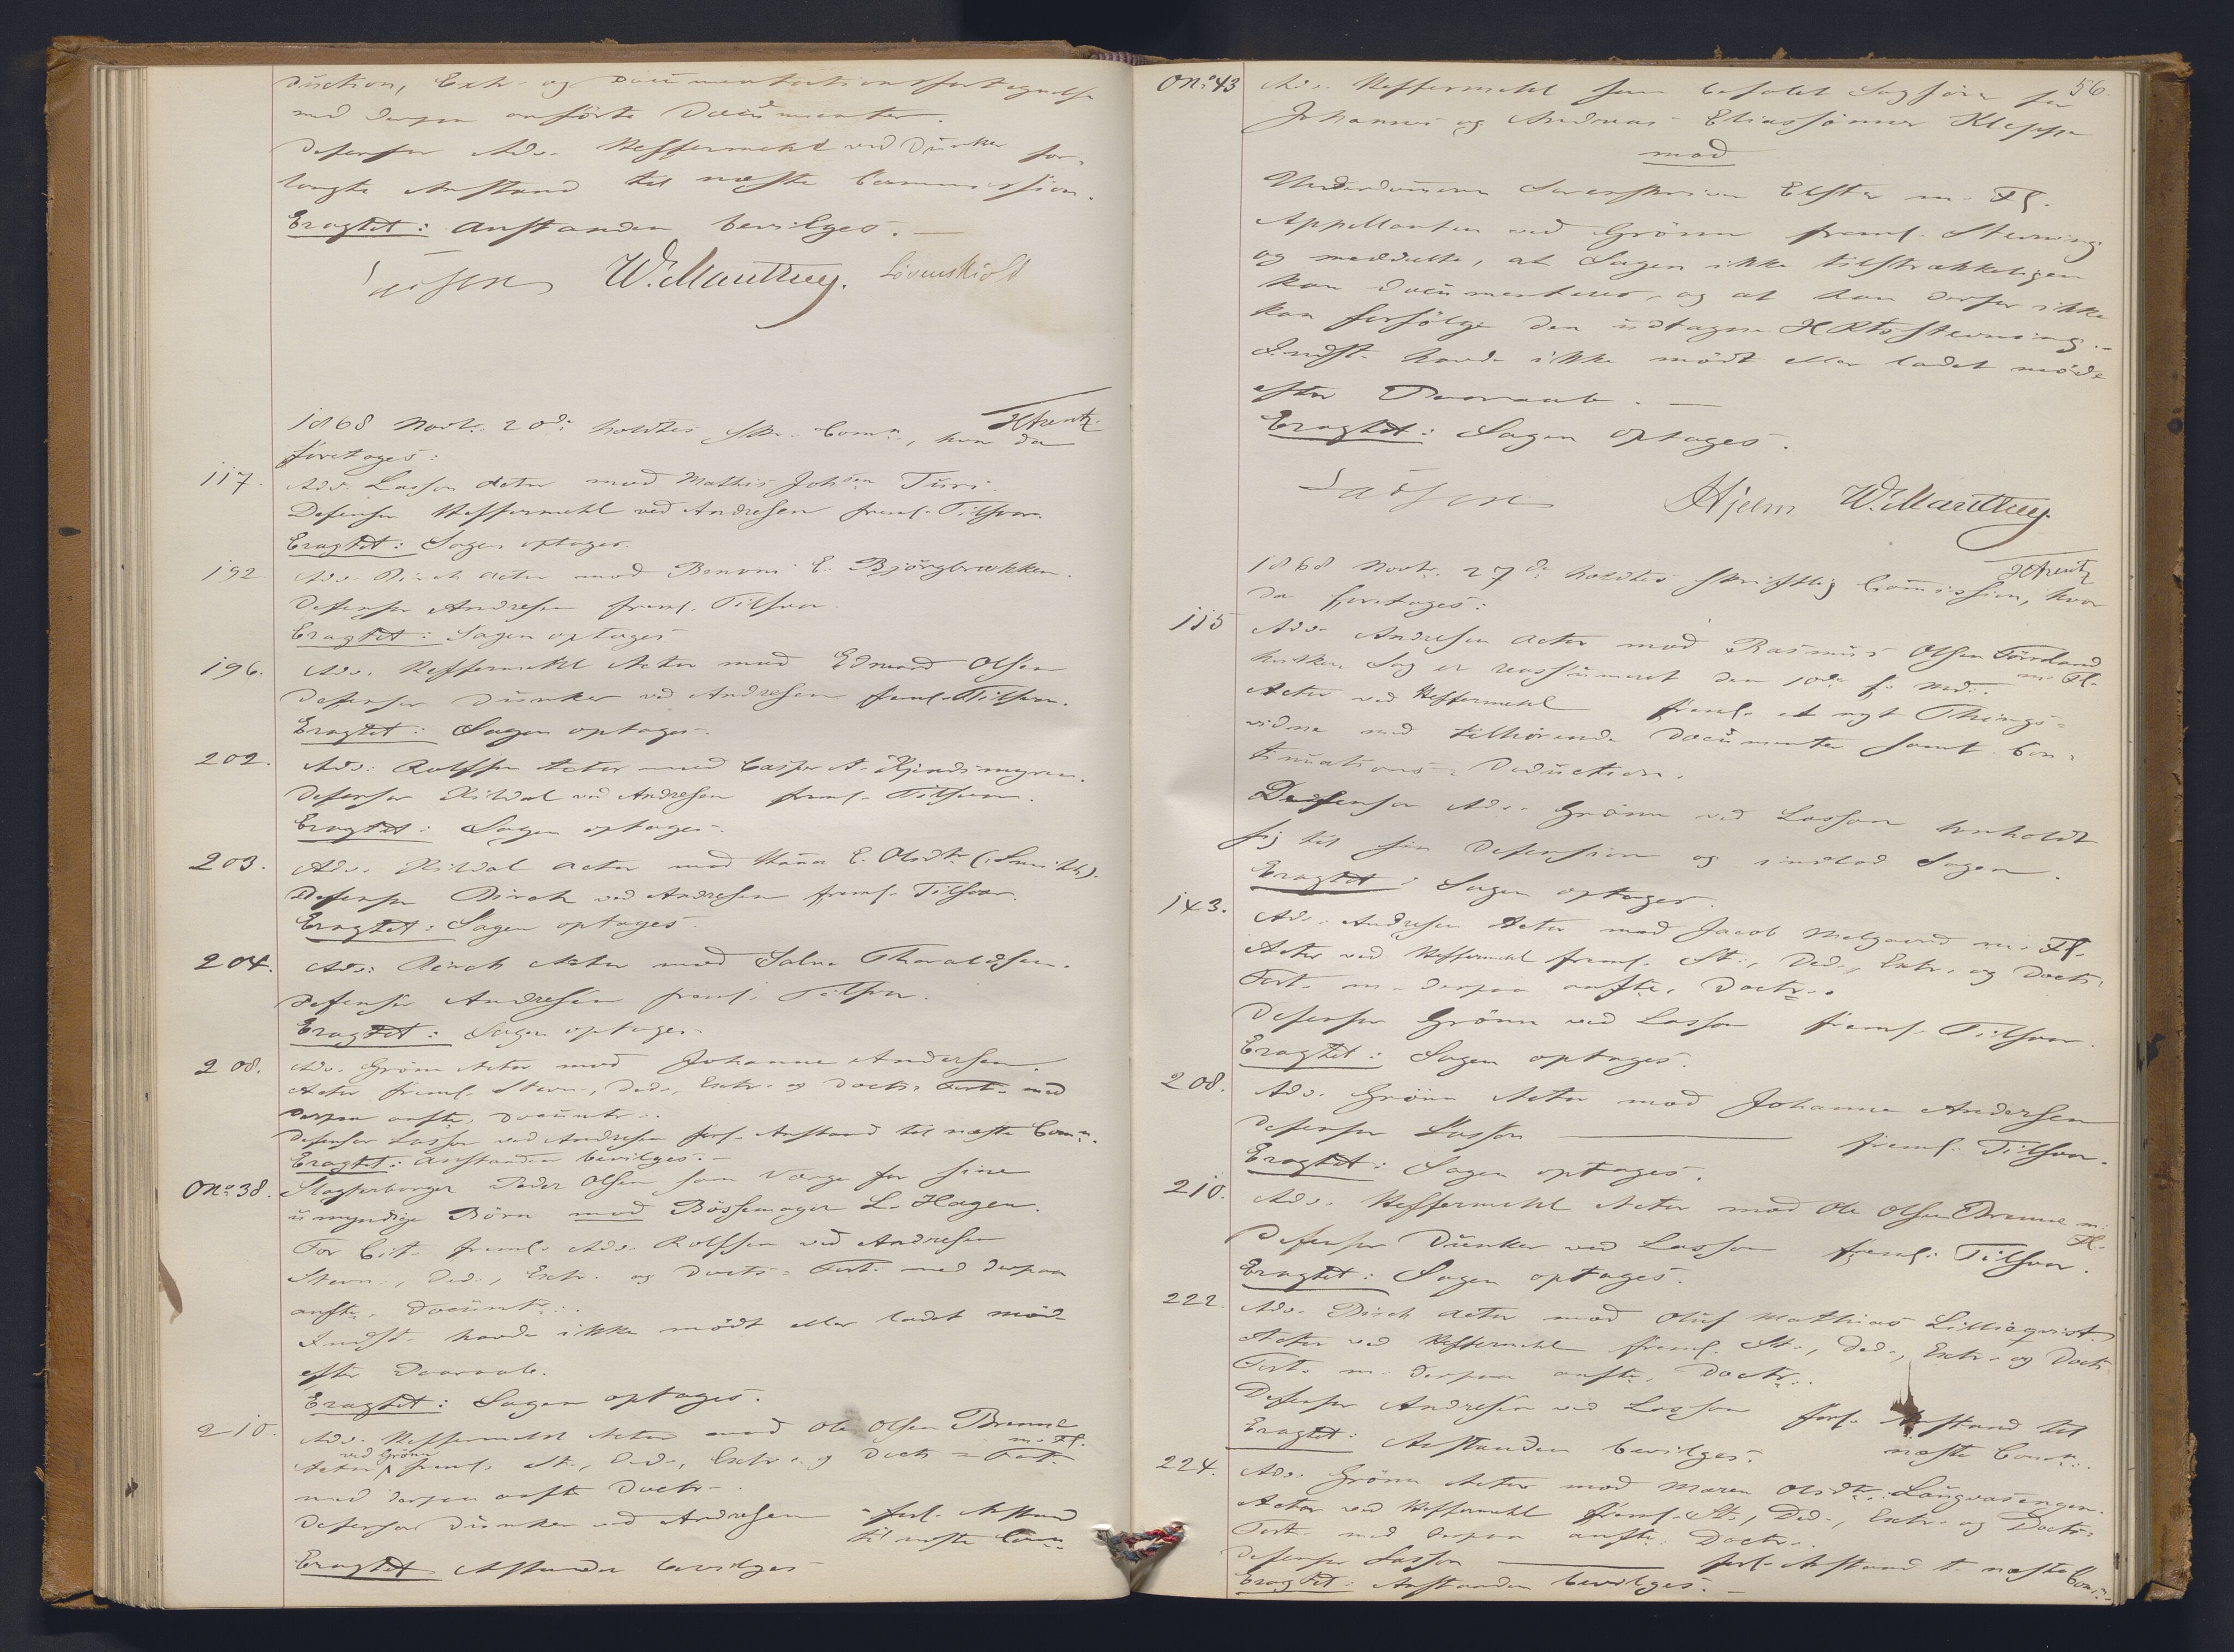 duction, Extr. og Documentationsfortegnelse
med derpaa anførte Documenter.
Defensor Adv. Heffermehl ved Dunker for-
langte Anstand til næste Commission.
Eragtet: Anstanden bevilges. —
W. Manthey. Løvenskiold
1868 Novbr. 20de holdtes skr. Comn, hvor da
HArentz
foretoges:
117. Adv. Lasson Actor mod Mathis Johsen Turi.
Defensor Heffermehl ved Andresen freml. Tilsvar.
Eragtet: Sagen optages.
192 Adv. Dirch Actor mod Benoni E. Bjørgbrækken.
Defensor Andresen freml. Tilsvar.
Eragtet: Sagen optages
196. Adv. Heffermehl Actor mod Edvard Olsen
Defensor Dunker ved Andresen freml. Tilsvar.
Eragtet: Sagen optages.
202. Adv. Rolfsen Actor mod Casper A.
Defensor Rildal ved Andresen freml. Tilsvar.
Eragtet: Sagen optages.
203. Adv. Rildal Actor mod E. Olsdtr (Smith).
Defensor Dirch ved Andresen freml. Tilsvar.
Eragtet: Sagen optages.
204. Adv. Dirch Actor mod Salve Thoraldsen.
Defensor Andresen freml. Tilsvar.
Eragtet: Sagen optages.
208. Adv. Grönn Actor mod Johanne Andersen.
Actor freml. Stevn., Ded., Extr. og Docts. Fort. med
derpaa anfte. Documtr.
Defensor Lasson ved Andresen forl. Anstand til næste Comn.
Eragtet: Anstanden bevilges. —
O No. 38. Slagterborger Peder Olsen som Værge for sine
umyndige Börn mod Bössemager L. Hagen.
For Cit. freml. Adv. Rolfsen ved Andresen
Stevn., Ded., Extr. og Docts. Fort. med derpaa
anfte. Documtr.
Indst. havde ikke mødt eller ladet møde
efter Paaraab.
Eragtet: Sagen optages.
210. Adv. Heffermehl Actor mod Ole Olsen Brenne
m. Fl.
ved Grönn
Actor freml. St., Ded., Extr. og Docts Fort.
med derpaa anfte Doctr.
Defensor Dunker ved Andresen forl. Anstand
til næste Comn.
Eragtet Anstanden bevilges
56.
O No. 43 Adv. Heffermehl som befalet Sagfører for
Johannes og Andreas Eliassønner Kleppe
mod
Underdommeren Sorenskriver Elster m. Fl.
Appellanten ved Grönn freml. Stevning
og meddelte, at Sagen ikke tilstrækkeligen
kan documenteres, og at han derfor ikke
kan forfølge den udtagne HRtsstevning.—
Indst. havde ikke mødt eller ladet møde
efter Paaraab. —
Eragtet: Sagen optages.
Hjelm W. Manthey.
1868 Novbr. 27de holdtes skriftlig Commission, hvor
HArentz
da foretoges:
115 Adv. Andresen Actor mod Rasmus Olsen Förrland
m. Fl.
hvilken Sag er reassumeret den 10de f. Md.
Actor ved Heffermehl freml. et nyt Things-
vidne med tilhörende Documenter samt Con-
tinuations-Deduction.
Defensor Adv. Grönn ved Lasson henholdt
sig til sin Defension og indlod Sagen.
Eragtet: Sagen optages.
143. Adv. Andresen Actor mod Jacob Melgaard m. Fl.
Actor ved Heffermehl freml. St., Ded., Extr. og Docts.
Fort. m. derpaa anfte. Doctr.
Defensor Grönn ved Lasson freml. Tilsvar.
Eragtet: Sagen optages.
208. Adv. Grönn Actor mod Johanne Andersen
Defensor Lasson — freml. Tilsvar.
Eragtet: Sagen optages.
210. Adv. Heffermehl Actor mod Ole Olsen Brenne m.
Fl.
Defensor Dunker ved Lasson freml. Tilsvar.
Eragtet: Sagen optages.
222. Adv. Dirch Actor mod Oluf Mathias Lillieqvist.
Actor ved Heffermehl freml. St., Ded., Extr. og Docts
Fort. m. derpaa anfte. Doctr.
Defensor Andresen ved Lasson forl. Anstand til
næste Comn.
Eragtet: Anstanden bevilges.
224. Adv. Grönn Actor mod Maren Olsdtr. Langvasengen.
Actor ved Heffermehl freml. St., Ded., Extr. og Docts.
Fort. med derpaa anfte. Doctr.
Defensor Lasson — forl. Anstand t. næste Comn.
Eragtet: Anstanden bevilges. —